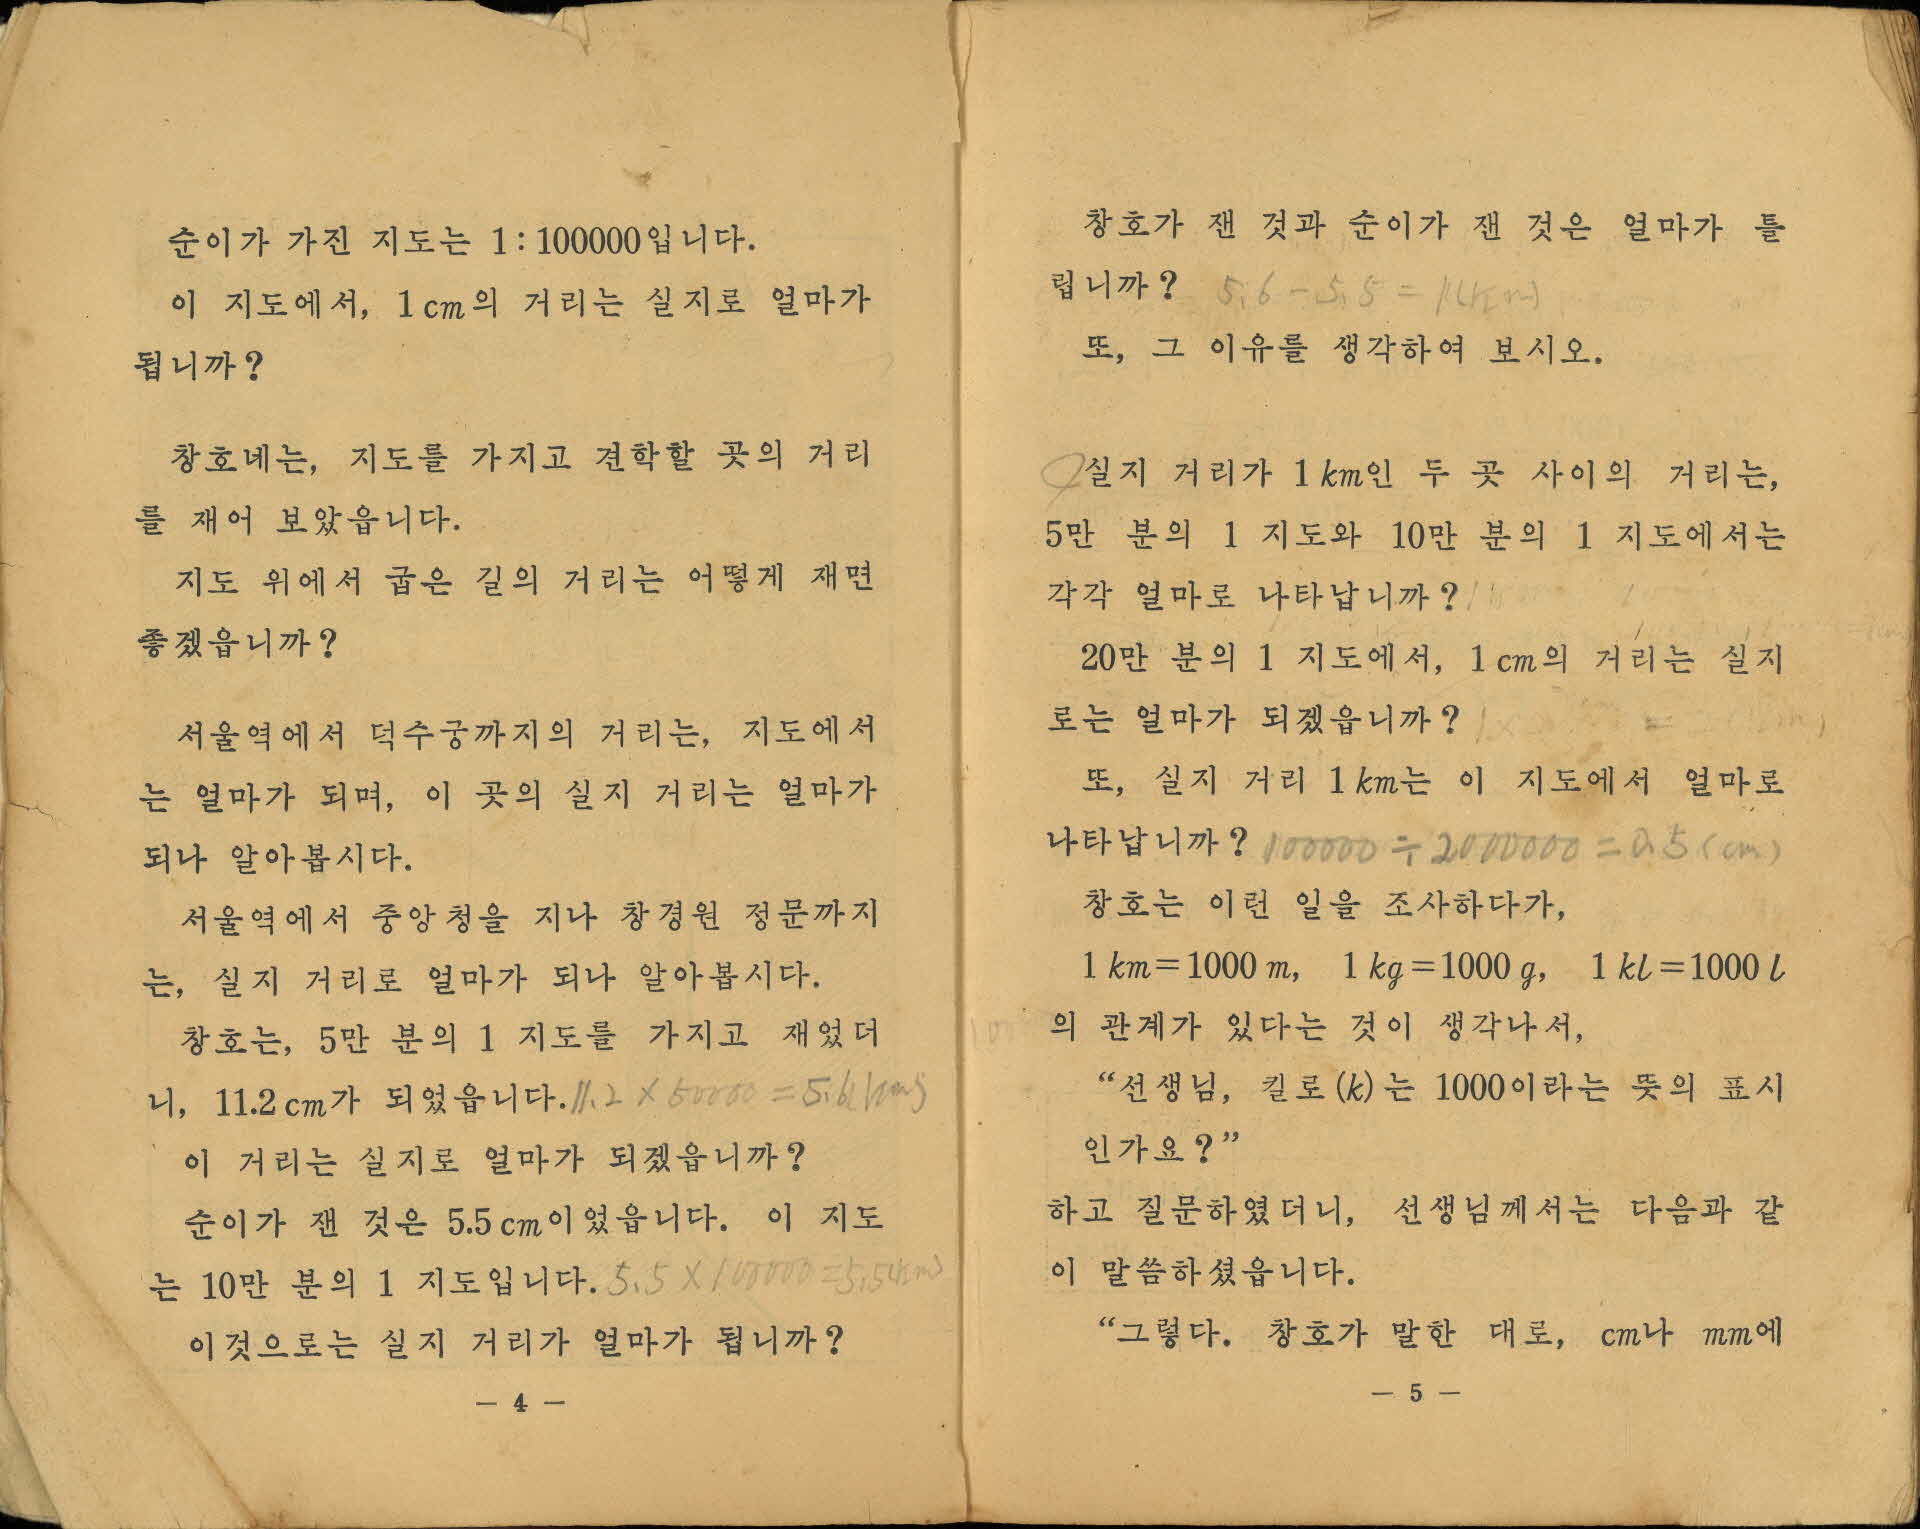 순이가 가진 지도는 1 : 100000입니다.
이 지도에서, 1 cm의 거리는 실지로 얼마가
됩니까?
창호네는, 지도를 가지고 견학할 곳의 거리
를 재어 보았읍니다.
지도 위에서 굽은 길의 거리는 어떻게 재면
좋겠읍니까?
서울역에서 덕수궁까지의 거리는, 지도에서
는 얼마가 되며, 이 곳의 실지 거리는 얼마가
되나 알아봅시다.
서울역에서 중앙청을 지나 창경원 정문까지
는, 실지 거리로 얼마가 되나 알아봅시다.
창호는, 5만 분의 1 지도를 가지고 재었더
니, 11.2 cm가 되었읍니다. 11.2 × 50000 = 5.6(km)
이 거리는 실지로 얼마가 되겠읍니까?
순이가 잰 것은 5.5 cm이었읍니다. 이 지도
는 10만 분의 1 지도입니다. 5.5 × 100000 = 5.5(km)
이것으로는 실지 거리가 얼마가 됩니까?
— 4 —
창호가 잰 것과 순이가 잰 것은 얼마가 틀
립니까? 5.6 - 5.5 =
또, 그 이유를 생각하여 보시오.
실지 거리가 1 km인 두 곳 사이의 거리는,
5만 분의 1 지도와 10만 분의 1 지도에서는
각각 얼마로 나타납니까?
20만 분의 1 지도에서, 1 cm의 거리는 실지
로는 얼마가 되겠읍니까?
또, 실지 거리 1 km는 이 지도에서 얼마로
나타납니까? 100000 ÷ 2000000 = 0.5 (cm)
창호는 이런 일을 조사하다가,
1 km=1000 m, 1 kg=1000 g, 1 kl=1000 l
의 관계가 있다는 것이 생각나서,
“선생님, 킬로(k)는 1000이라는 뜻의 표시
인가요?”
하고 질문하였더니, 선생님께서는 다음과 같
이 말씀하셨읍니다.
“그렇다. 창호가 말한 대로, cm나 mm에
— 5 —